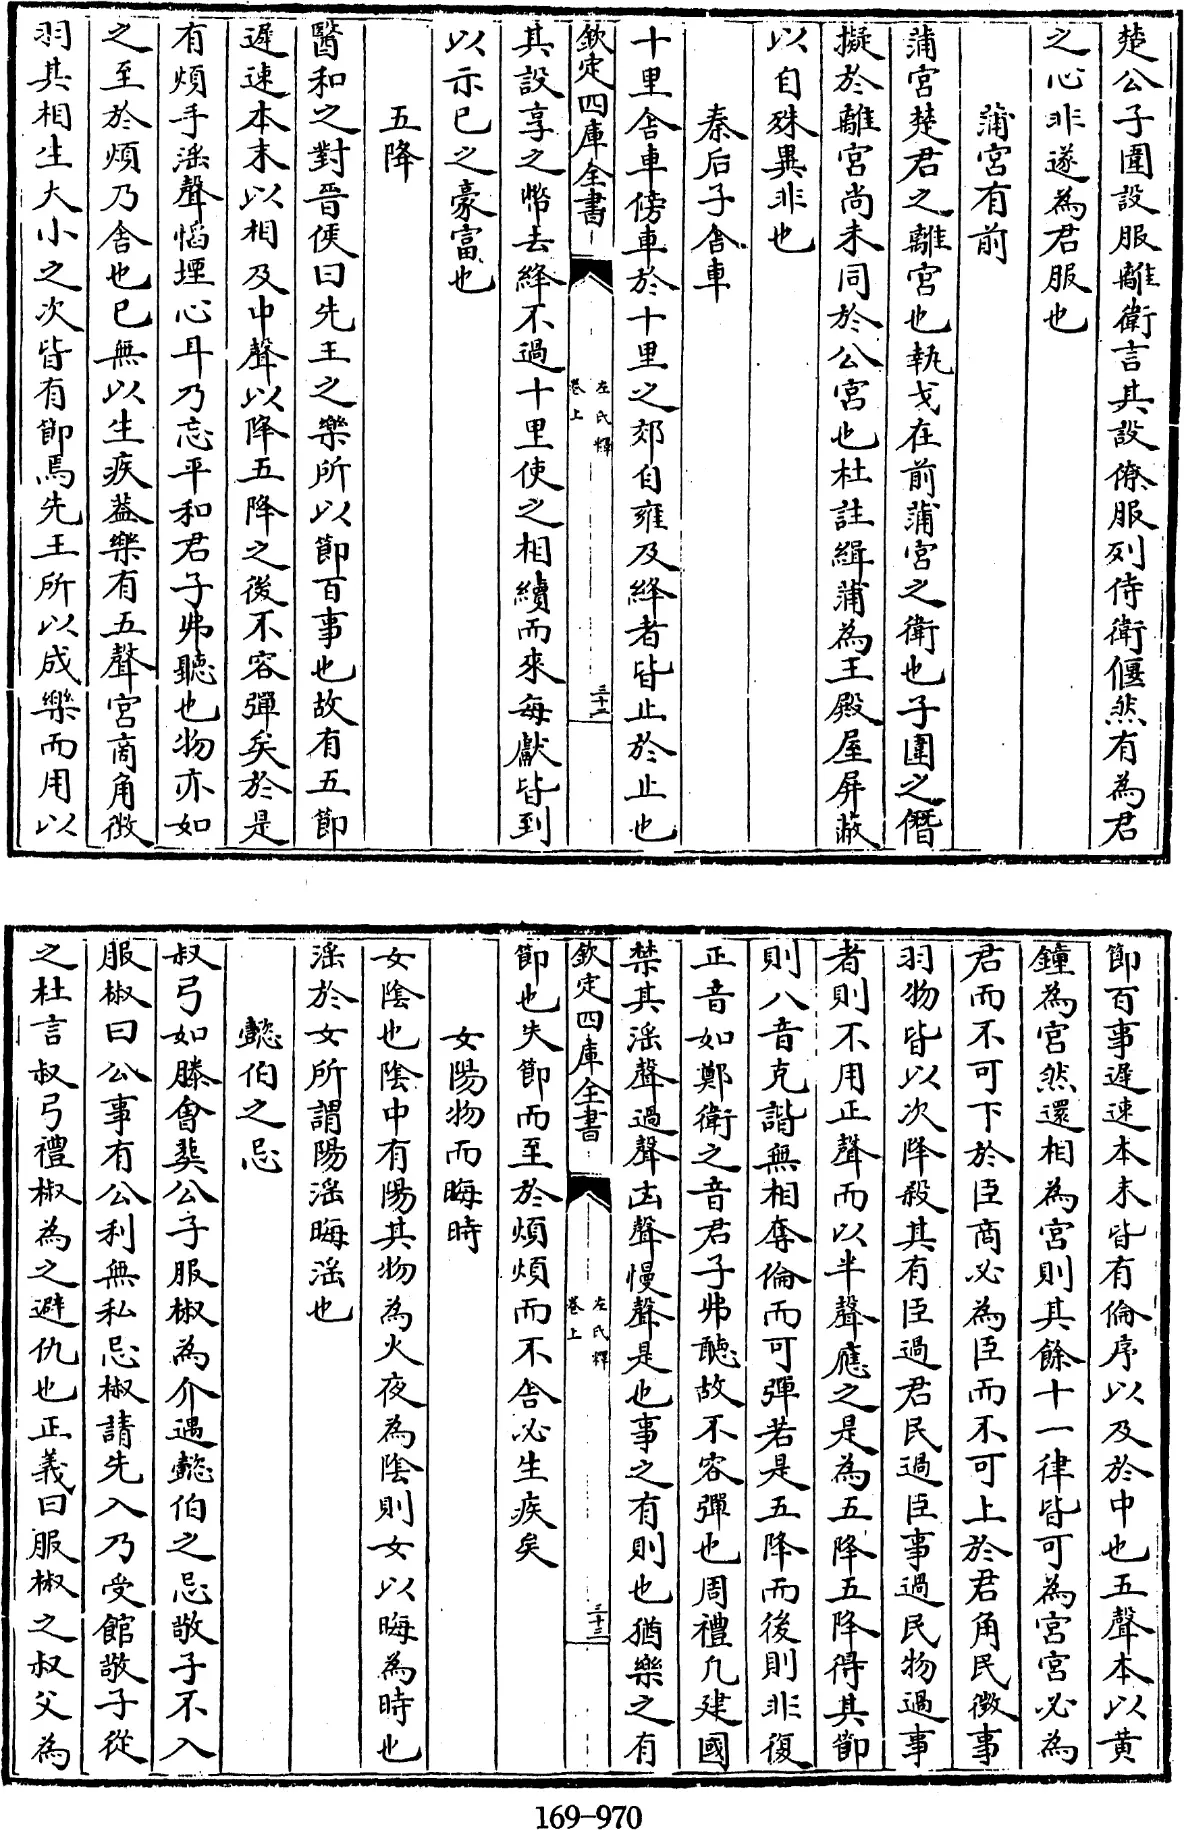 楚公子圍設服離衛言其設僚服列侍衛偃然有為君
之心非遂為君服也
蒲宮有前
蒲宮楚君之離宮也執戈在前蒲宮之衛也子圍之僭
擬於離宮尚未同於公宮也杜註緝蒲為王殿屋屏蔽
以自殊異非也
秦后子舍車
十里舍車傍車於十里之郊自雍及絳者皆止於止也
欽定四庫全書
左氏釋
卷上
三十二
其設享之幣去絳不過十里使之相續而來每獻皆到
以示已之豪富也
五降
醫和之對晉侯曰先王之樂所以節百事也故有五節
遲速本末以相及中聲以降五降之後不容彈矣於是
有煩手滛聲慆堙心耳乃忘平和君子弗聽也物亦如
之至於煩乃舍也已無以生疾葢樂有五聲宮商角徴
羽其相生大小之次皆有節焉先王所以成樂而用以
節百事遲速本末皆有倫序以及於中也五聲本以黃
鐘為宮然還相為宮則其餘十一律皆可為宮宮必為
君而不可下於臣商必為臣而不可上於君角民徴事
羽物皆以次降殺其有臣過君民過臣事過民物過事
者則不用正聲而以半聲應之是為五降五降得其節
則八音克諧無相奪倫而可彈若是五降而後則非復
正音如鄭衛之音君子弗聽故不容彈也周禮凡建國
禁其滛聲過聲凶聲慢聲是也事之有則也猶樂之有
欽定四庫全書
左氏釋
卷上
三十三
節也失節而至於煩煩而不舍必生疾矣
女陽物而晦時
女陰也陰中有陽其物為火夜為陰則女以晦為時也
滛於女所謂陽滛晦滛也
懿伯之忌
叔弓如滕會葬公子服椒為介遇懿伯之忌敬子不入
服椒曰公事有公利無私忌椒請先入乃受館敬子從
之杜言叔弓禮椒為之避仇也正義曰服椒之叔父為
169-970